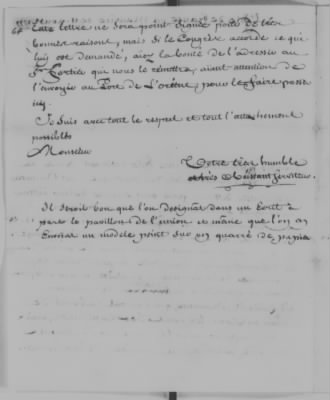 Cette lettre ne sera point signée pour de très
bonnes raisons, mais si le Congrès accorde ce qui
luis est demandé, aiez la bonté de l'adresser au
S. qui nous le remettra, aiant attention de
l'envoyer au Port de L'orient, pour le faire passer
icy.
Je suis avec tout le respect et tout l'attachement
possibles
Monsieur
Votre très humble
et très obéissant serviteur.
Il seroit bon que l'on designat dans un Ecrit à
part le pavillon de l'union et même que l'on en
Envoiat un modèle peint sur un quarré de papier